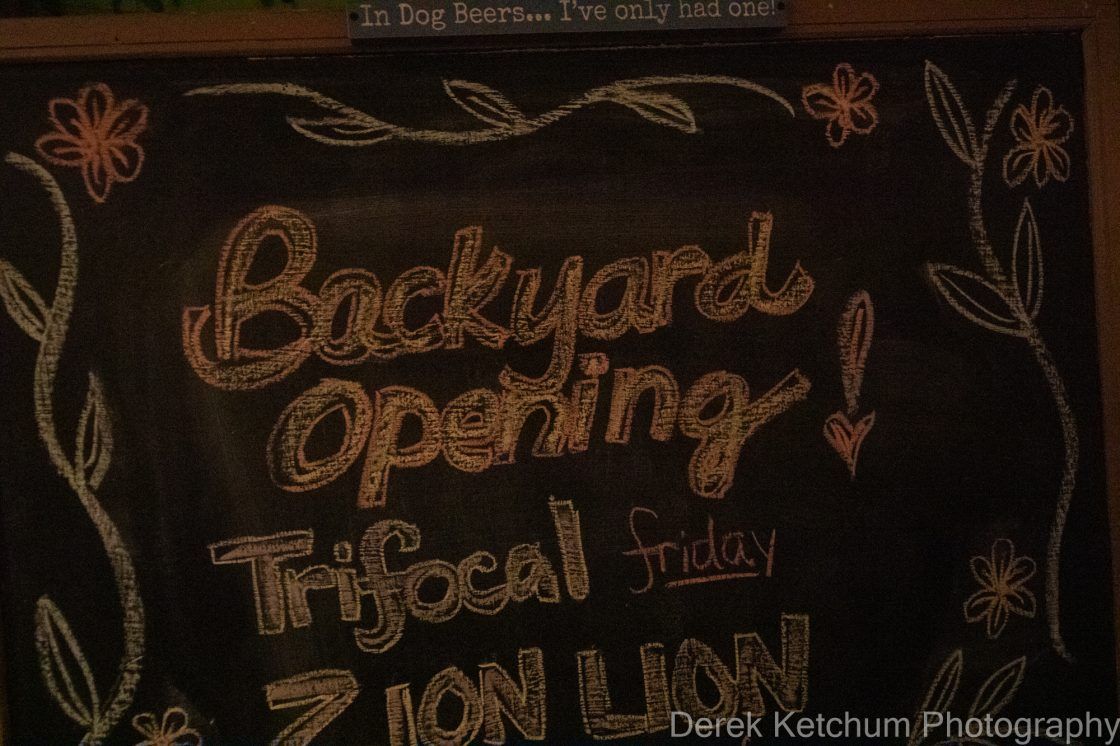 In Dog Beers... I've only had one!
Backyard
opening!
Trifocal friday
ZION LION
Derek Ketchum Photography